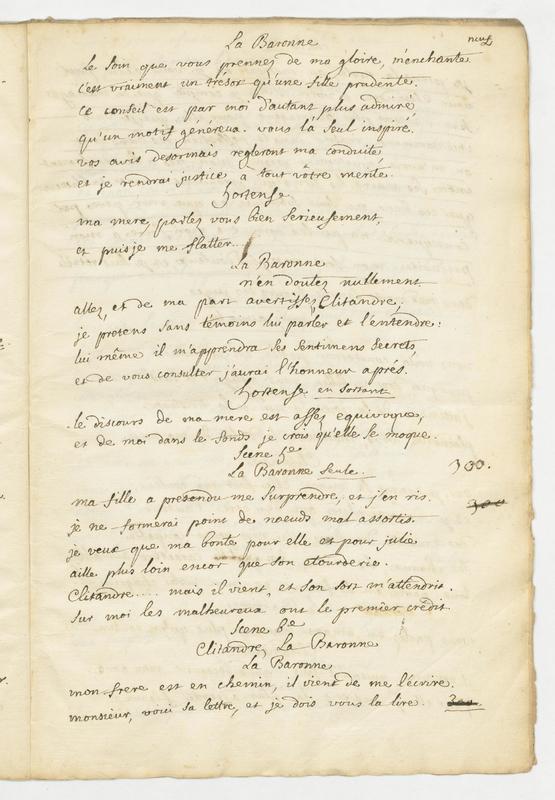 neuf
La Baronne
Le soin que vous prennez de ma gloire, m'enchante
C'est vraiment un trésor qu'une fille prudente.
Ce conseil est par moi d'autant plus admiré
qu'un motif généreux vous l'a seul inspiré.
vos avis desormais regleront ma conduite,
et je rendrai justice à tout vôtre merite.
hortense
ma mere, parlez vous bien serieusement,
et puis je me flatter...
La Baronne
n'en doutez nullement
allez, et de ma part avertissez Clitandre;
je pretens sans témoins lui parler et l'entendre:
lui même il m'apprendra ses sentimens secrets,
et de vous consulter j'aurai l'honneur aprés.
hortense en sortant
le discours de ma mere est assez equivoque,
et de moi dans le fonds je crois qu'elle se moque.
Scene 5e
La Baronne seule.
300.
ma fille a pretendu me surprendre, et j'en ris.
300
je ne formerai point de noeuds mal assortis.
je veux que ma bonté pour elle et pour julie
aille plus loin encor que son étourderie.
Clitandre..... mais il vient, et son sort m'attendrit.
sur moi les malheureux ont le premier crédit.
Scene 6e
Clitandre, La Baronne
La Baronne
mon frere est en chemin, il vient de me l'écrire.
monsieur, voici sa lettre, et je dois vous la lire.